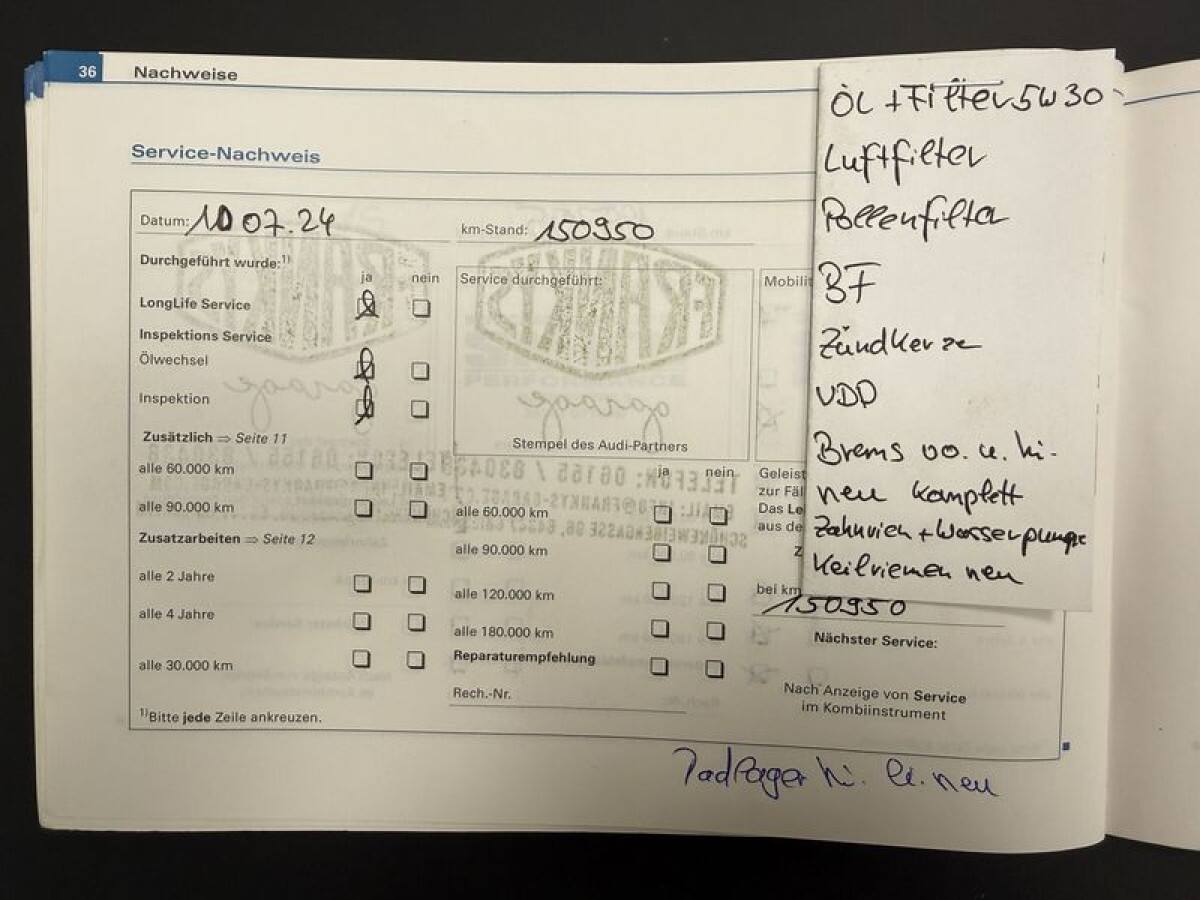 36 Nachweise
Service-Nachweis
Datum: 10 07.24
km-Stand: 150950
Durchgeführt wurde:1)
ja nein
LongLife Service
Inspektions Service
Ölwechsel
Inspektion
Zusätzlich ⇒ Seite 11
alle 60.000 km
alle 90.000 km
Zusatzarbeiten ⇒ Seite 12
alle 2 Jahre
alle 4 Jahre
alle 30.000 km
1)Bitte jede Zeile ankreuzen.
Service durchgeführt:
Stempel des Audi-Partners
ja nein
alle 60.000 km
alle 90.000 km
alle 120.000 km
alle 180.000 km
Reparaturempfehlung
Rech.-Nr.
Mobilit
Geleist
zur Fäl
Das Le
aus de
Z
bei km
150950
Nächster Service:
Nach Anzeige von Service
im Kombiinstrument
ÖL + Filter 5W30
Luftfilter
Pollenfilter
BF
Zündkerze
VDD
Brems vo. u. hi.
neu komplett
Zahnrieh + Wasserpumpe
Keilriemen neu
Radlager hi. li. neu